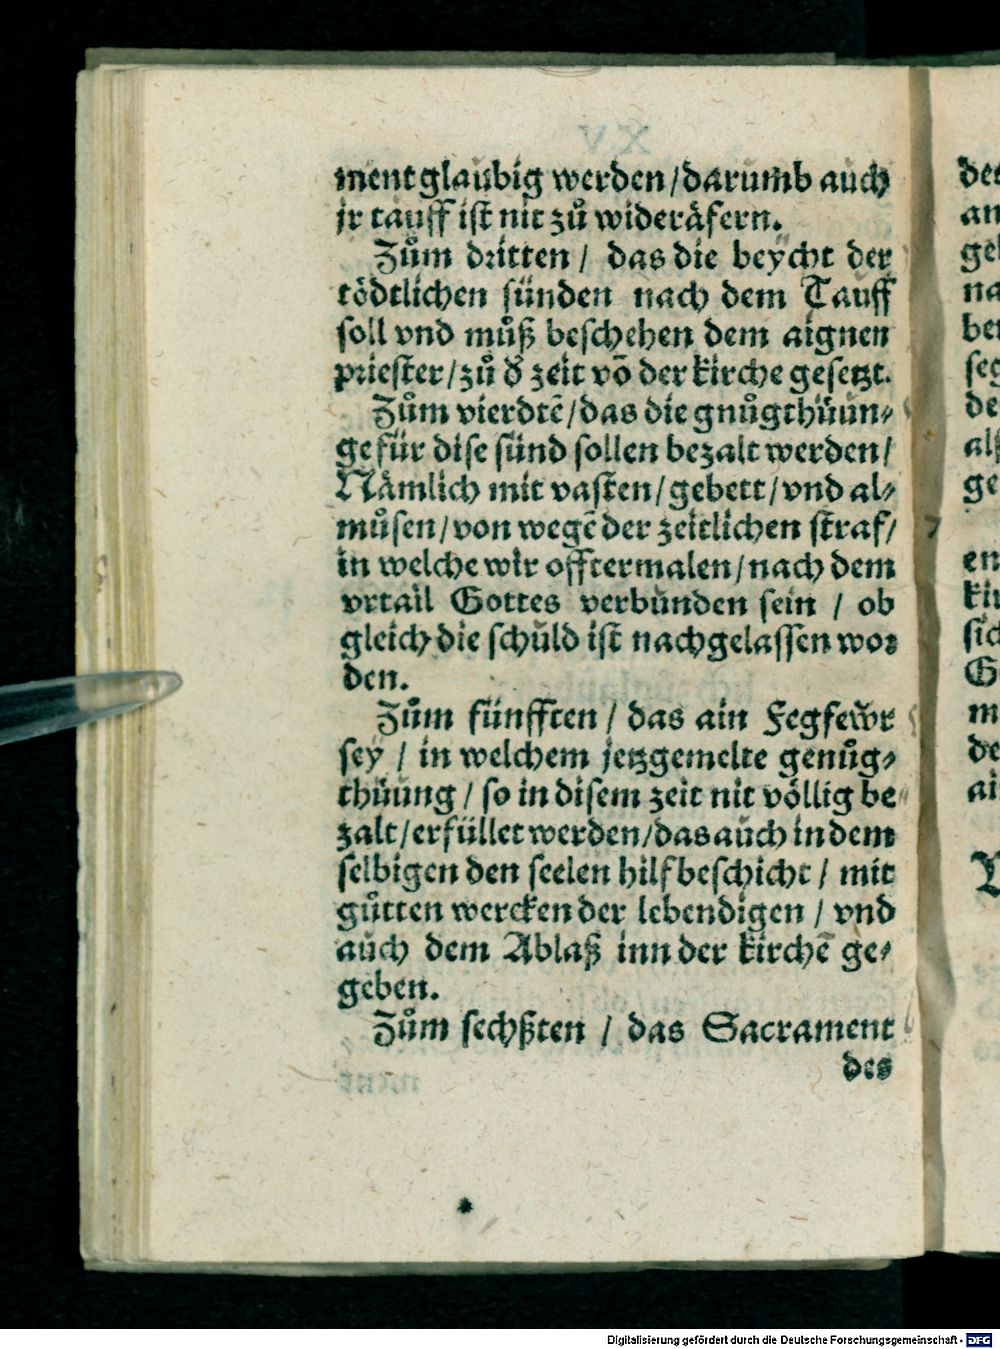 ment glaubig werden / darumb auch
jr tauff ist nit zů wideräfern.
Zům dritten / das die beycht der
tödtlichen sünden nach dem Tauff
soll vnd můß beschehen dem aignen
priester / zů d̕ zeit võ der kirche gesetzt.
Zům vierdtẽ / das die gnůgthüun⸗
ge für dise sünd sollen bezalt werden /
Nämlich mit vasten / gebett / vnd al⸗
můsen / von wegẽ der zeitlichen straf /
in welche wir offtermalen / nach dem
vrtail Gottes verbunden sein / ob
gleich die schuld ist nachgelassen wor
den.
Zům fünfften / das ain Fegfewr
sey / in welchem jetzgemelte genůg⸗
thüung / so in disem zeit nit völlig be
zalt / erfüllet werden / das auch in dem
selbigen den seelen hilf beschicht / mit
gůtten wercken der lebendigen / vnd
auch dem Ablaß inn der kirchẽ ge⸗
geben.
Zům sechßten / das Sacrament
des
Digitalisierung gefördert durch die Deutsche Forschungsgemeinschaft - DFG